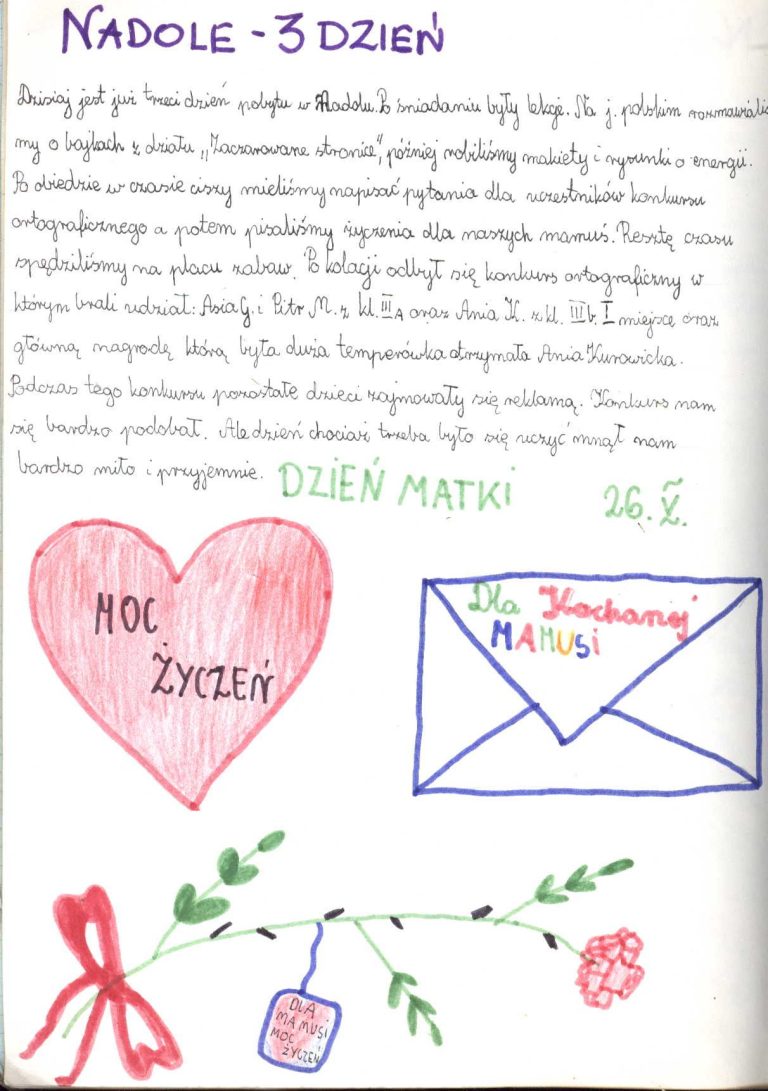 NADOLE - 3 DZIEŃ
Dzisiaj jest już trzeci dzień pobytu w Nadolu. Po śniadaniu były lekcje. Na j. polskim rozmawialiś
my o bajkach z działu „Zaczarowane stronice”, później robiliśmy makiety i rysunki o energii.
Po obiedzie w czasie ciszy mieliśmy napisać pytania dla uczestników konkursu
ortograficznego a potem pisaliśmy życzenia dla naszych mamuś. Resztę czasu
spędziliśmy na placu zabaw. Po kolacji odbył się konkurs ortograficzny w
którym brali udział: Asia G. i Piotr M. z kl. III A oraz Ania K. z kl. III b. I miejsce oraz
główną nagrodę którą była duża temperówka otrzymała Ania Kurowicka.
Podczas tego konkursu pozostałe dzieci zajmowały się reklamą. Konkurs nam
się bardzo podobał. Ale dzień chociaż trzeba było się uczyć minął nam
bardzo miło i przyjemnie.
DZIEŃ MATKI 26. V.
MOC
ŻYCZEŃ
Dla Kochanej
MAMUSi
DLA
MAMUSI
MOC
ŻYCZEŃ